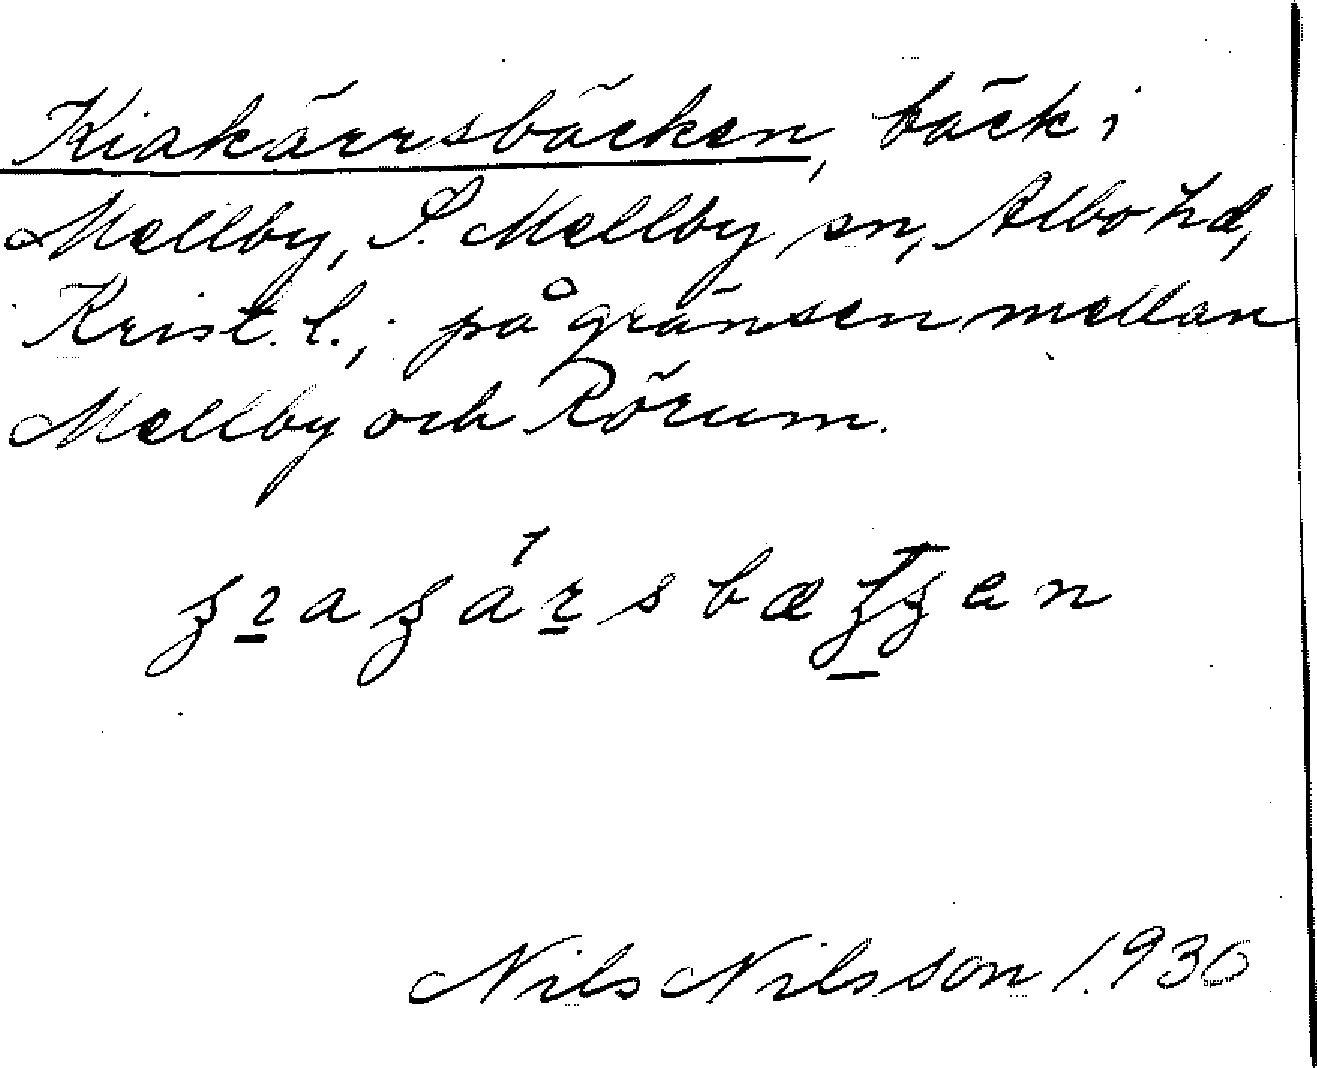 Kiakärrsbäcken, bäck i
Mellby, S. Mellby sn, Albo hd,
Krist. l.; på gränsen mellan
Mellby och Rörum.
Nils Nilsson 1930